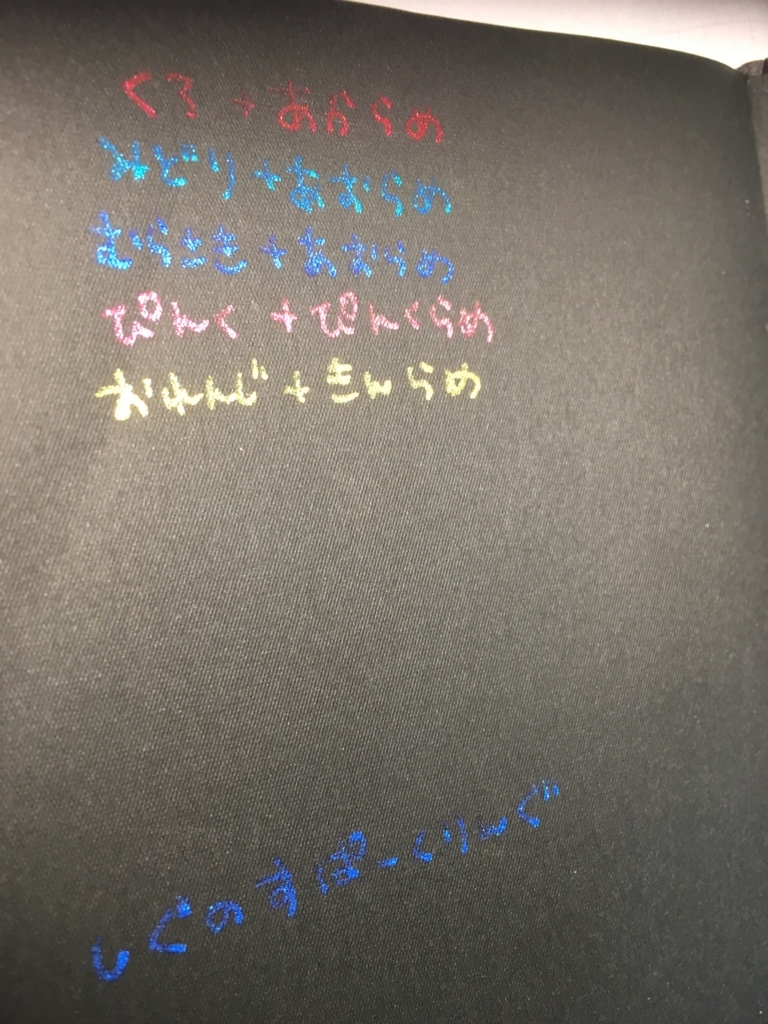 くろ+あからめ
みどり+あおらめ
むらさき+あおらめ
ぴんく+ぴんくらめ
おれんじ+きんらめ
しぐのすぱーくりんぐ